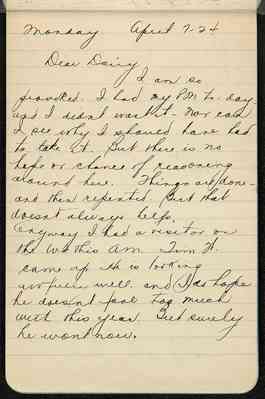 Monday April 7-24
Dear Dairy
I am so
provoked. I had my P.M. to-day
and I didn't want it - Nor can
I see why I should have had
to take it. But there is no
hope or chance of reasoning
around here. Things are done -
and then repented. But that
doesnt always help.
Anyway I had a visitor on
the W. this A.M. Tom H.
came up. He is looking
well. and I do hope
he doesn't fool too much
with this year. But surely
he wont now.